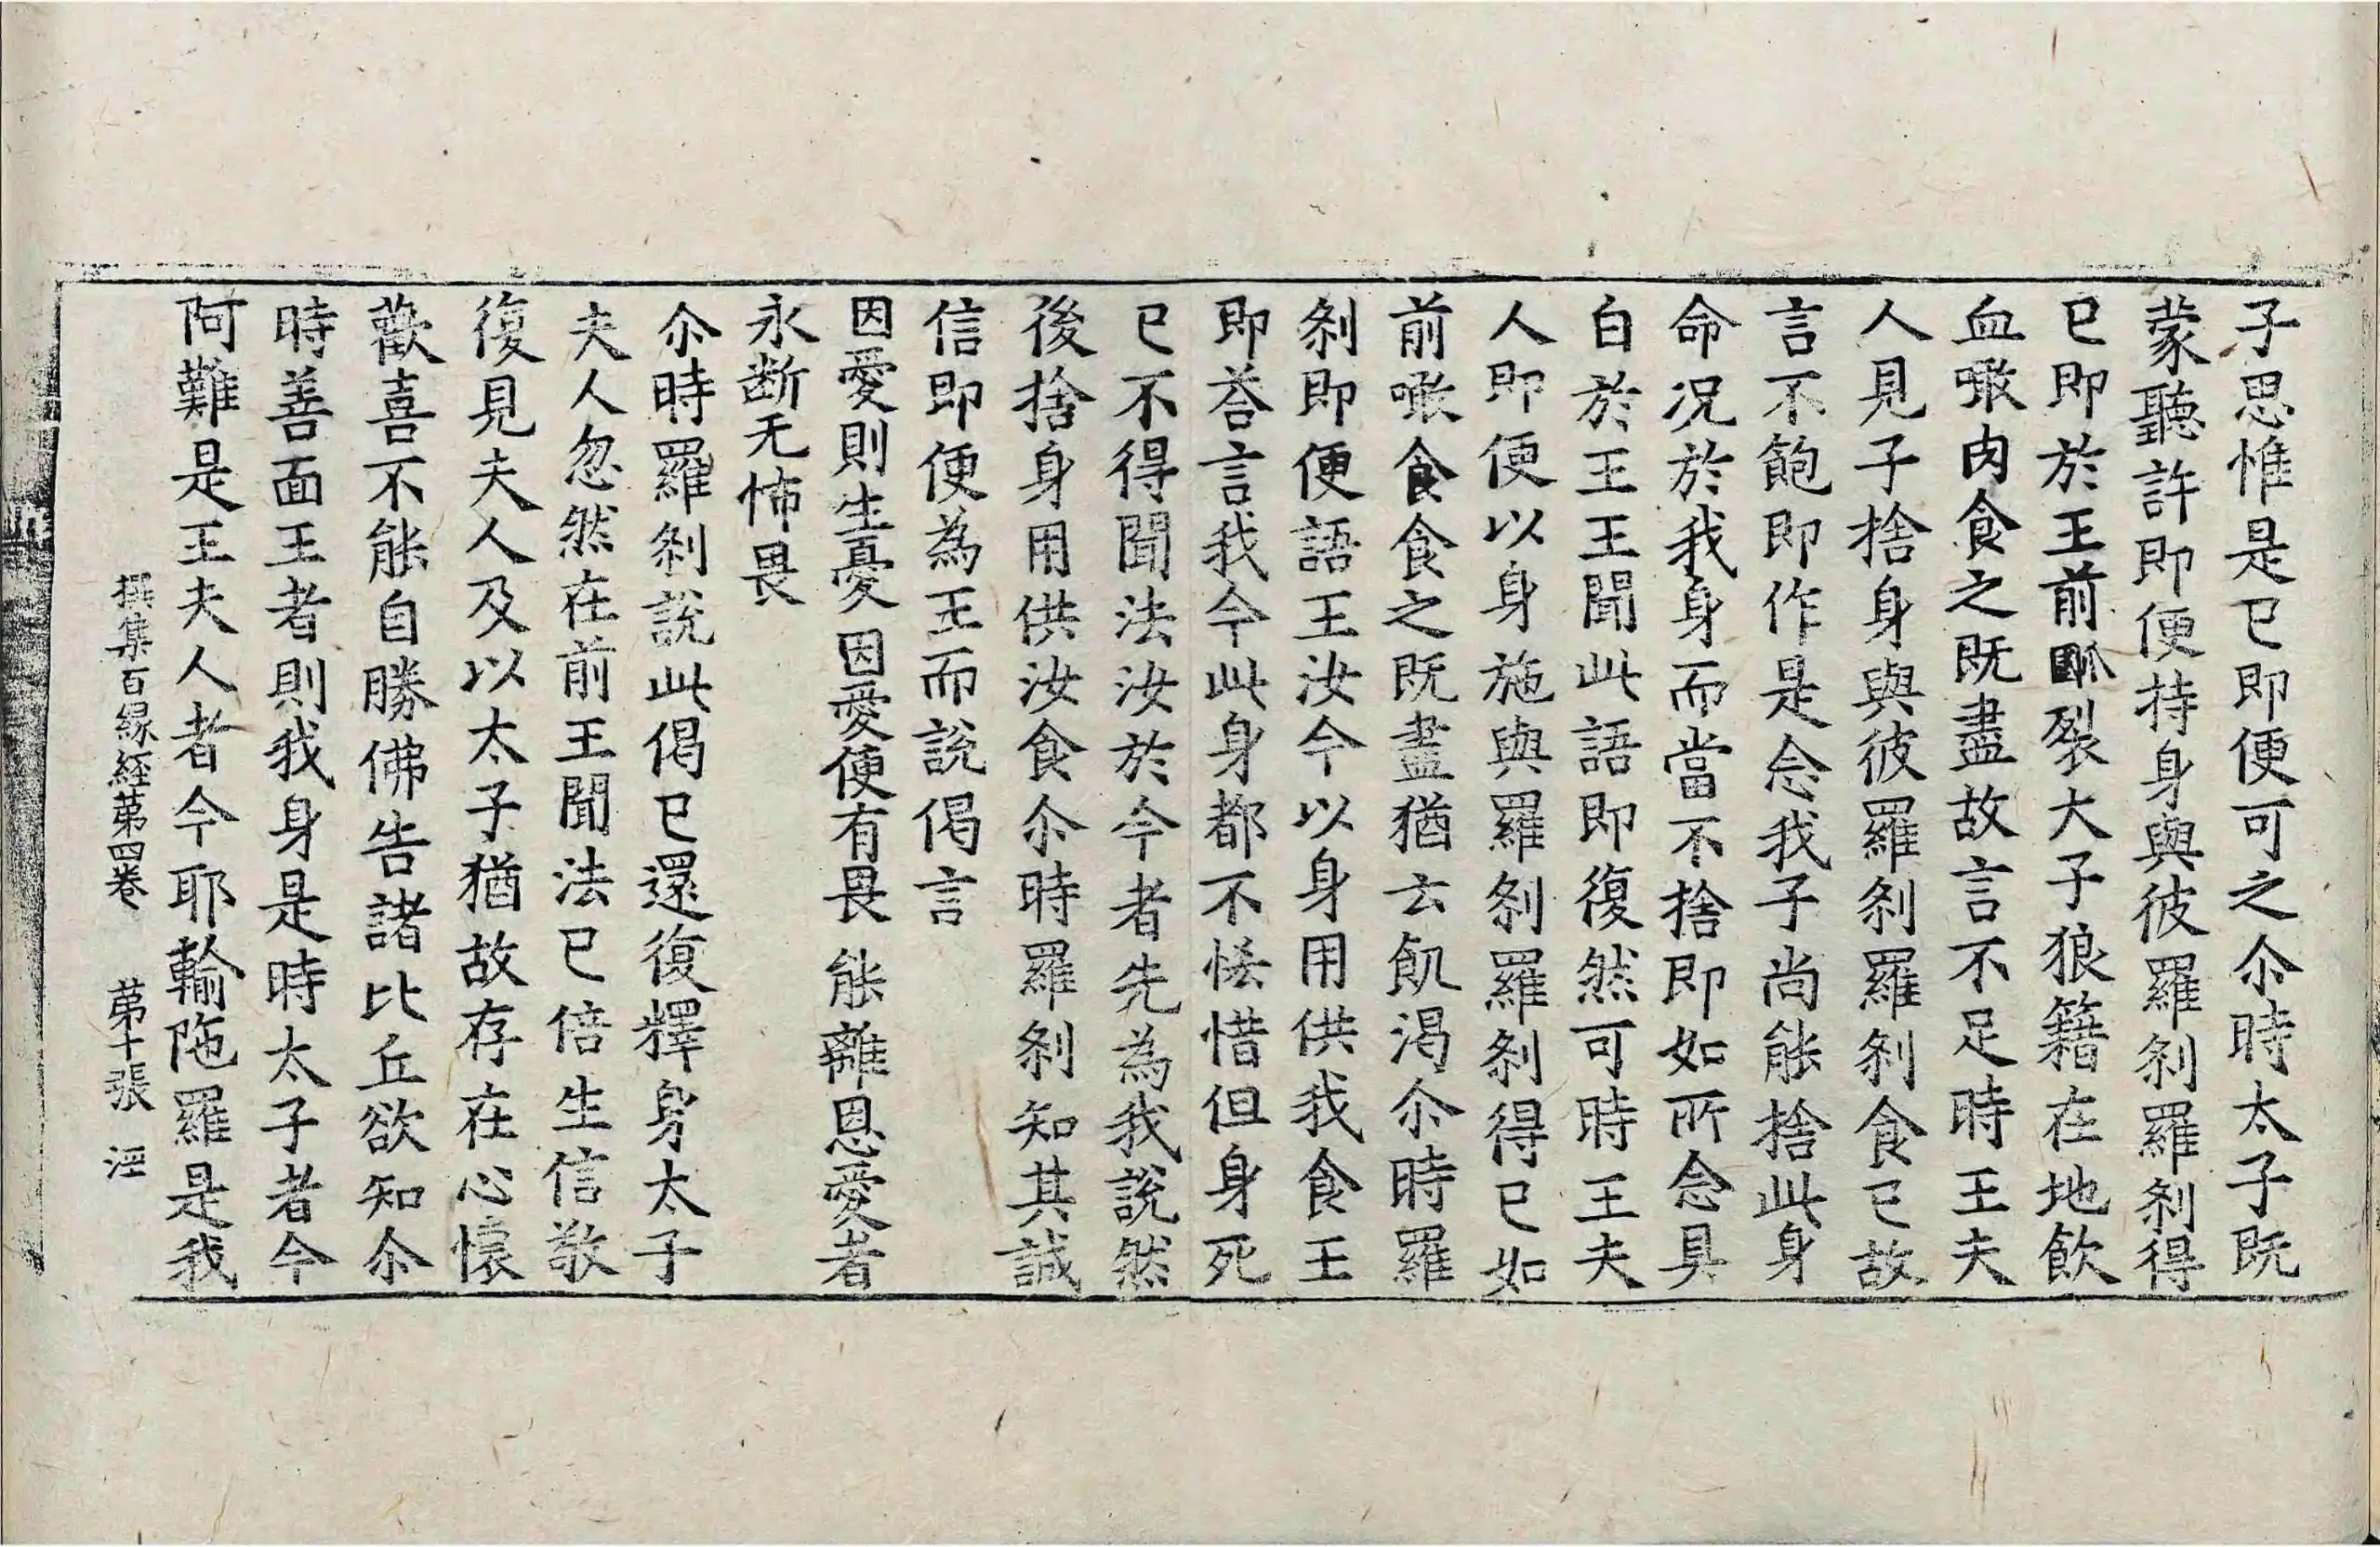 子思惟是已即便可之尒時太子既
蒙聽許即便持身與彼羅刹羅刹得
已即於王前㼌裂太子狼籍在地飲
血噉肉食之既盡故言不足時王夫
人見子捨身與彼羅刹羅刹食已故
言不飽即作是念我子尚能捨此身
命况於我身而當不捨即如所念具
白於王王聞此語即復然可時王夫
人即便以身施與羅刹羅刹得已如
前噉食食之既盡猶云飢渴尒時羅
刹即便語王汝今以身用供我食王
即荅言我今此身都不恡惜但身死
已不得聞法汝於今者先為我說然
後捨身用供汝食尒時羅刹知其誠
信即便為王而說偈言
因愛則生憂 因愛便有畏 能離恩愛者
永断无怖畏
尒時羅刹說此偈已還復釋身太子
夫人忽然在前王聞法已倍生信敬
復見夫人及以太子猶故存在心懷
歡喜不能自勝佛告諸比丘欲知尒
時善面王者則我身是時太子者今
阿難是王夫人者今耶輸陁羅是我
撰集百緣經第四卷 第十張 涇